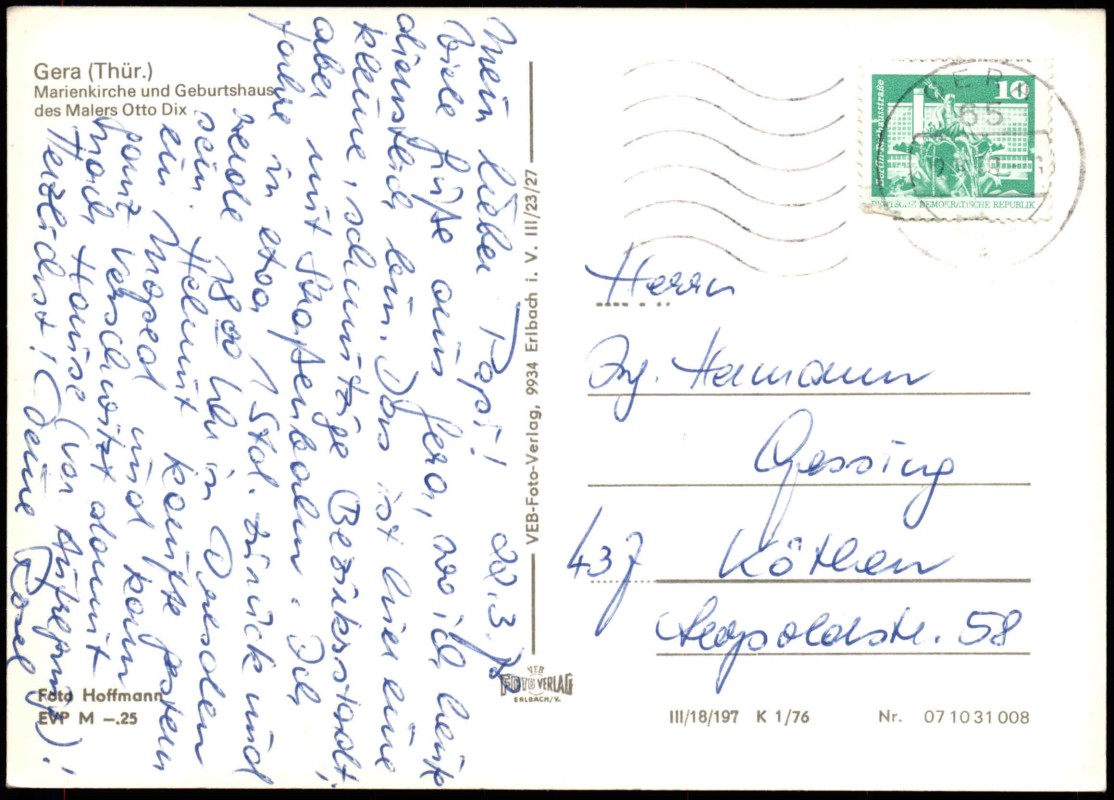 Gera (Thür.)
Marienkirche und Geburtshaus
des Malers Otto Dix
Mein lieber Papi! 22.3.76
Viele Grüße aus Gera, wo ich heute
dienstlich bin. Das ist hier eine
kleine, schmutzige Bezirksstadt,
aber mit Straßenbahn. Ich
fahre in etwa 1 Std. zurück und
werde 18.00 Uhr in Dresden
sein. Helmut kaufte gestern
ein Moped und kam
ganz verschwitzt damit
nach Hause (vor Aufregung)!
Herzlichst! Deine Rosel
Foto Hoffmann
EVP M –.25
VEB-Foto-Verlag, 9934 Erlbach i. V. III/23/27
VEB
FOTO VERLAG
ERLBACH/V.
GERA
65
10
DEUTSCHE DEMOKRATISCHE REPUBLIK
Herrn
Ing. Hermann
Gessing
437 Köthen
Leopoldstr. 58
III/18/197 K 1/76 Nr. 07 10 31 008